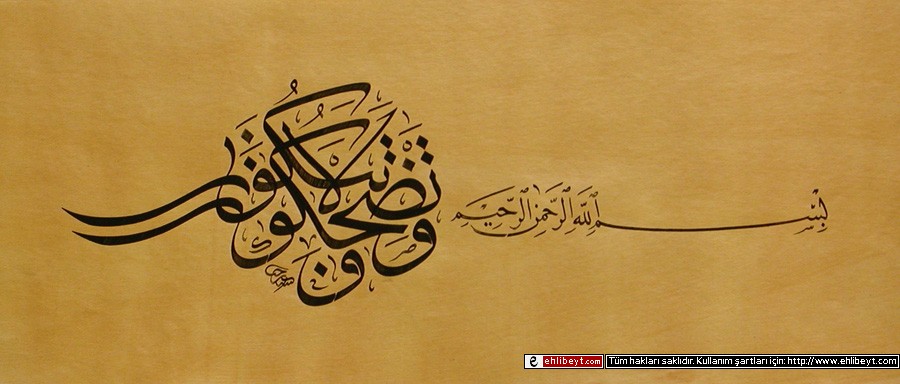 بِسْمِ اللهِ الرَّحْمٰنِ الرَّحِيمِ
وتضحكون ولا تبكون
ehlibeyt.com Tüm hakları saklıdır. Kullanım şartları için: http://www.ehlibeyt.com